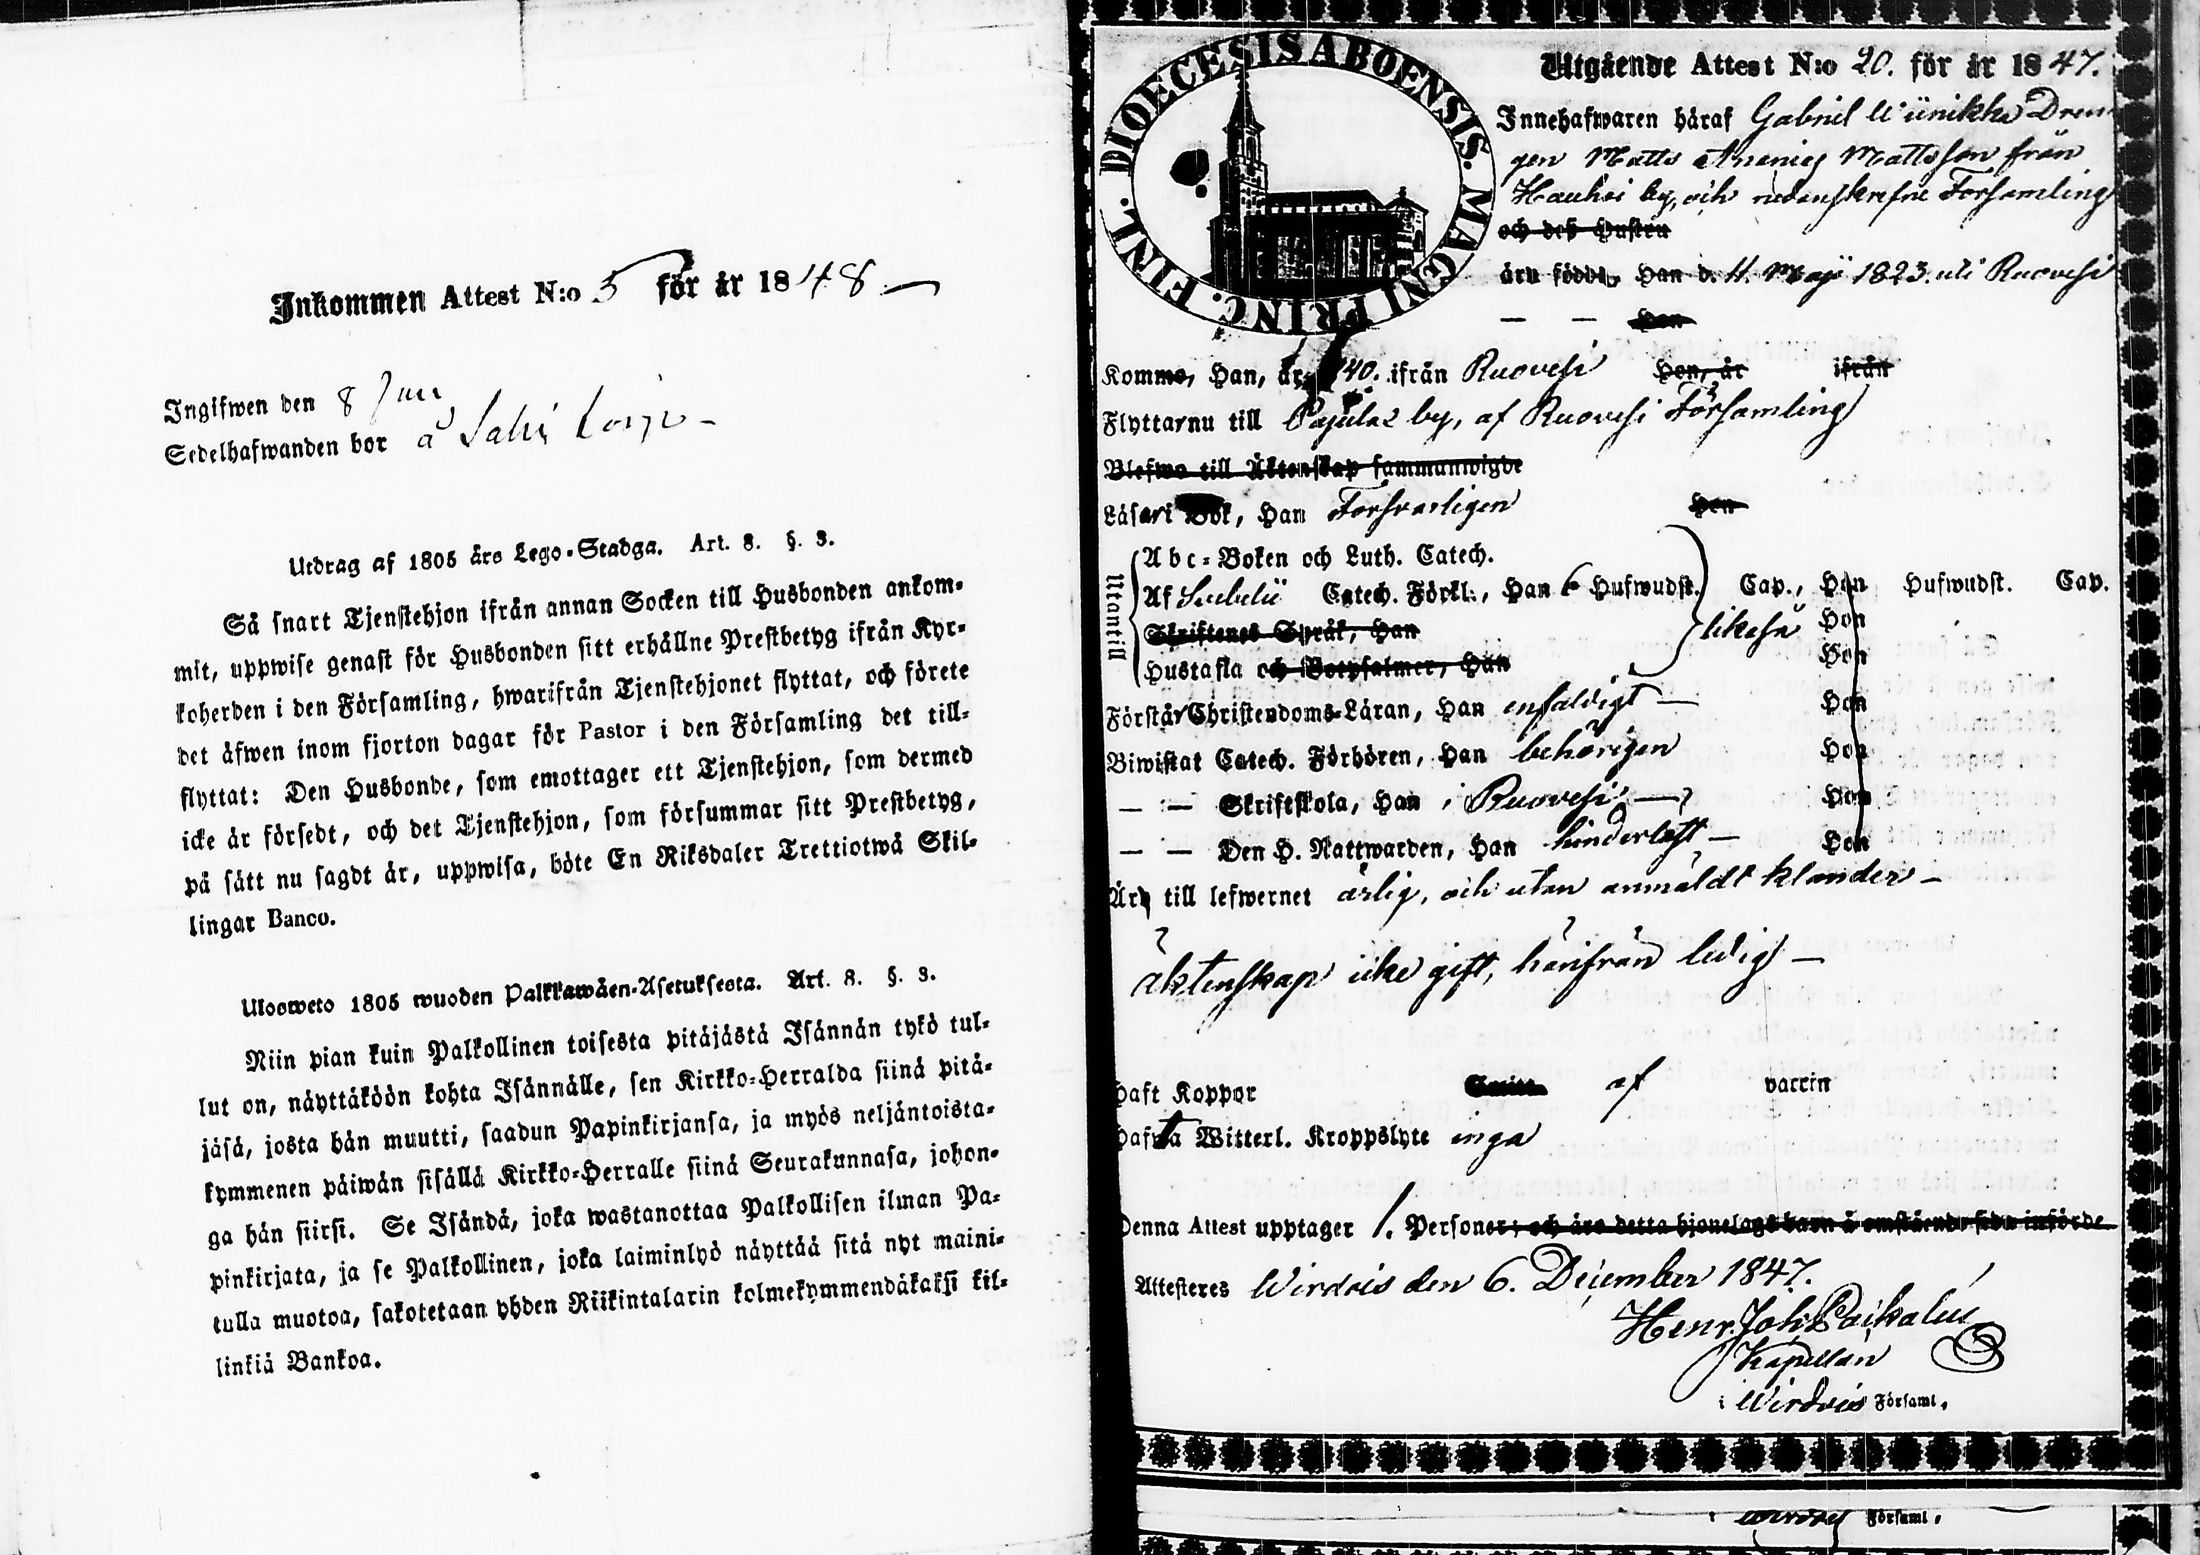 Inkommen Attest N:o 5 för år 1848
Ingifwen den 8 Jan
Sedelhafwanden bor å
Utdrag af 1805 års Lego-Stadga. Art. 8. §. 3.
Så snart Tjenstehjon ifrån annan Socken till Husbonden ankom-
mit, uppwise genast för Husbonden sitt erhållne Prestbetyg ifrån Kyr-
koherden i den Församling, hwarifrån Tjenstehjonet flyttat, och förete
det äfwen inom fjorton dagar för Pastor i den Församling det till-
flyttat: Den Husbonde, som emottager ett Tjenstehjon, som dermed
icke är försedt, och det Tjenstehjon, som försummar sitt Prestbetyg,
på sätt nu sagdt är, uppwisa, böte En Riksdaler Trettiotwå Skil-
lingar Banco.
Ulosweto 1805 wuoden Palkkawäen-Asetuksesta. Art. 8. §. 3.
Niin pian kuin Palkollinen toisesta pitäjästä Isännän tykö tul-
lut on, näyttäköön kohta Isännälle, sen Kirkko-Herralda siinä pitä-
jäsä, josta hän muutti, saadun Papinkirjansa, ja myös neljäntoista-
kymmenen päiwän sisällä Kirkko-Herralle siinä Seurakunnasa, johon-
ga hän siirsi. Se Isändä, joka wastanottaa Palkollisen ilman Pa-
pinkirjata, ja se Palkollinen, joka laiminlyö näyttää sitä nyt maini-
tulla muotoa, sakotetaan yhden Riikintalarin kolmekymmendäkaksi kil-
linkiä Bankoa.
DIOECESIS ABOENSIS. MAGNI PRINC. FINL.
Utgående Attest N:o 20. för år 1847.
Innehafwaren häraf Gabriel Dren
gen Matts Ananias Mattsson från
Hauhoi by, och nedanskrefne Församling
och deß Hustru
äro födde, Han d. 4. Maji 1823. uti Ruovesi
— — Hon
Komne, Han, år 1840. ifrån Ruovesi Hon, år ifrån
Flyttar nu till Pajulax by, af Ruovesi Församling
Blefwo till Äktenskap sammanwigde
Läser i Bok, Han Försvarligen Hon
Utantill
Abc-Boken och Luth. Catech.
Af Svebelii Catech. Förkl., Han 6 Hufwudst. Cap., Hon Hufwudst. Cap.
Skriftenes Språk, Han likaså Hon
Hustafla och Botpsalmer, Han Hon
Förstår Christendoms-Läran, Han enfaldigt — Hon
Biwistat Catech. Förhören, Han behörigen Hon
— — Skriftskola, Han i Ruovesi — Hon
— — Den H. Nattwarden, Han hinderlöst — Hon
Äro till lefwernet ärlig, och utan anmäldt klander —
äktenskap icke gift, härifrån ledig —
Haft Koppor Smitt. af vaccin
Hafwa Witterl. Kroppslyte inga
Denna Attest upptager 1. Personer; och äro detta hjonelags barn å omstående sida införde.
Attesteres Wirdois den 6. December 1847.
Henr. Joh.
Kapellan
i Wirdois Församl.
Församl.